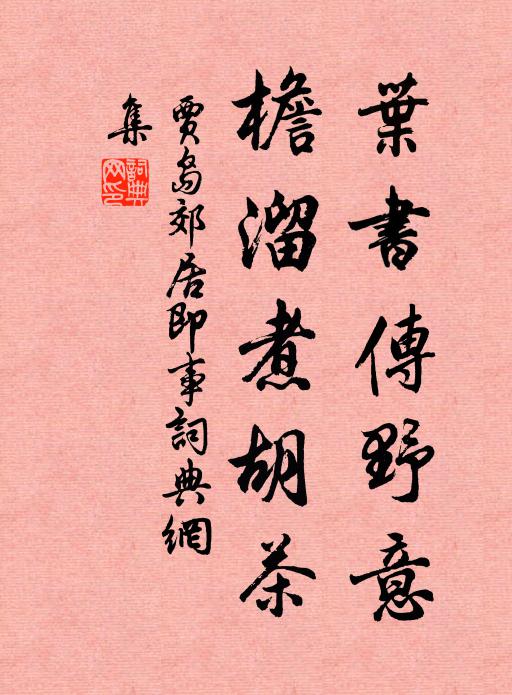 葉書傳野意
檐溜煮胡茶
賈島郊居即事詞典網
集
詞典網印